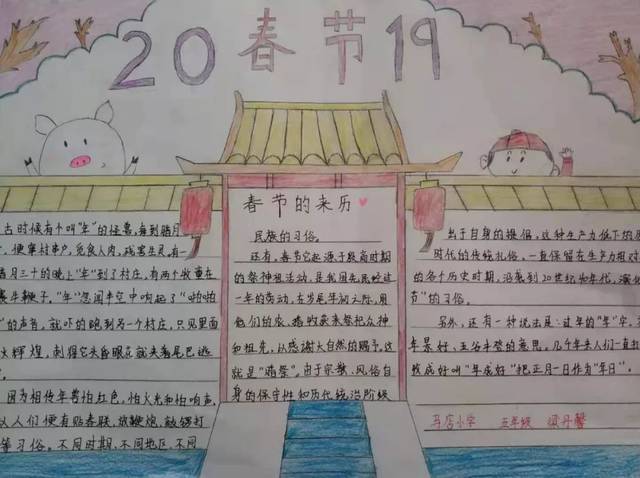 20春节19
古时候有个叫"年"的怪兽,每到腊月
便窜村串户,觅食人肉,残害生灵,有一
腊月三十的晚上"年"到了村庄,有两个牧童在
赛牛鞭子,"年"忽闻半空中响起了"啪啪
"的声音,就吓的跑到另一个村庄,只见里面
火辉煌,刺得它头昏眼花就夹着尾巴逃
因为相传年兽怕红色,怕火光和怕响声,
以人们便有贴春联,放鞭炮,敲锣打
等习俗。不同时期、不同地区、不同
春节的来历
民族的习俗。
还有,春节它起源于殷商时期
的祭神祖活动,是我国先民经过
一年的劳动,在岁尾年初之际,用
他们的农、渔收获来祭祀众神
和祖先,以感谢大自然的赐予,这
就是"腊祭"。由于宗教、风俗自
身的保守性和历代统治阶级
出于自身的提倡,这种生产力低下的
时代的传统礼俗,一直保留在生产力相对
的各个历史时期,沿袭到20世纪初年代,演
节"的习俗。
另外,还有一种说法是:过年的"年"字,
年景好、五谷丰登的意思。几千年来人们一直
收成好叫"年成好"把正月一日作为"年日"。
马店小学 五年级 丹馨